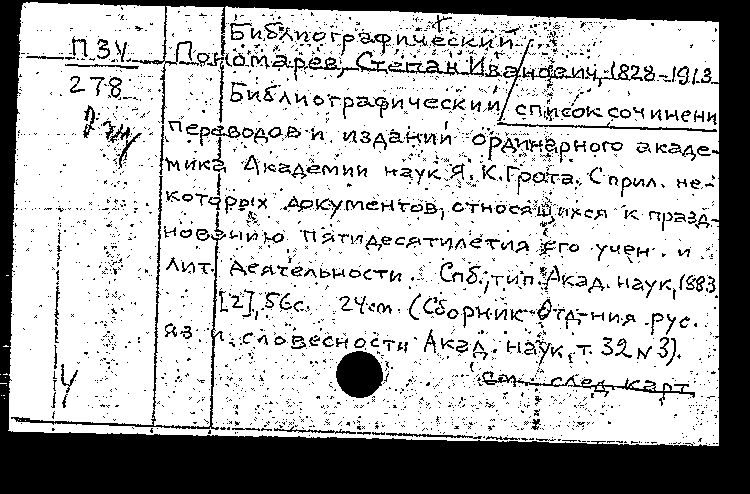 Библиографический
ПЗУ
Пономарев, Степан Иванович, 1828-1913
278
Библиографический / список сочинени
переводов и изданий ординарного акаде-
мика Академии наук Я. К. Грота. С прил. не-
которых документов, относящихся к празд-
нованию пятидесятилетия его учен. и
лит. деятельности. Спб., тип. Акад. наук, 1883
[2], 56с. 24см. (Сборник Отд-ния рус.
яз и словесности Акад. наук, т. 32 № 3).
см. след. карт.